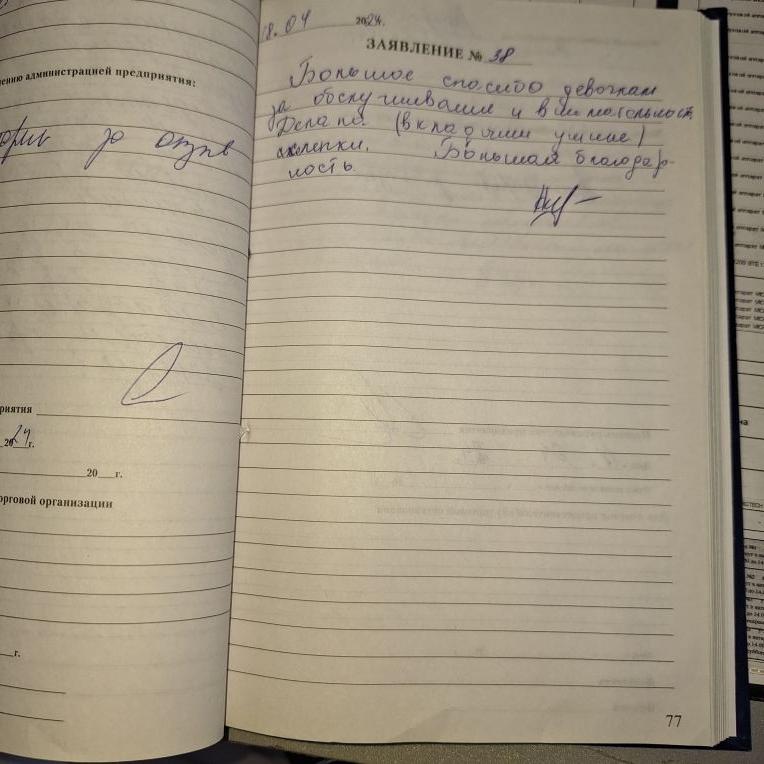 ению администрацией предприятия:
за отзыв
риятия
2024г.
20 г.
орговой организации
г.
18.04 2024.
ЗАЯВЛЕНИЕ № 38
Большое спасибо девочкам
за обслуживание и внимательность
Делали (вкладыши ушные)
Большая благодар-
ность.
77